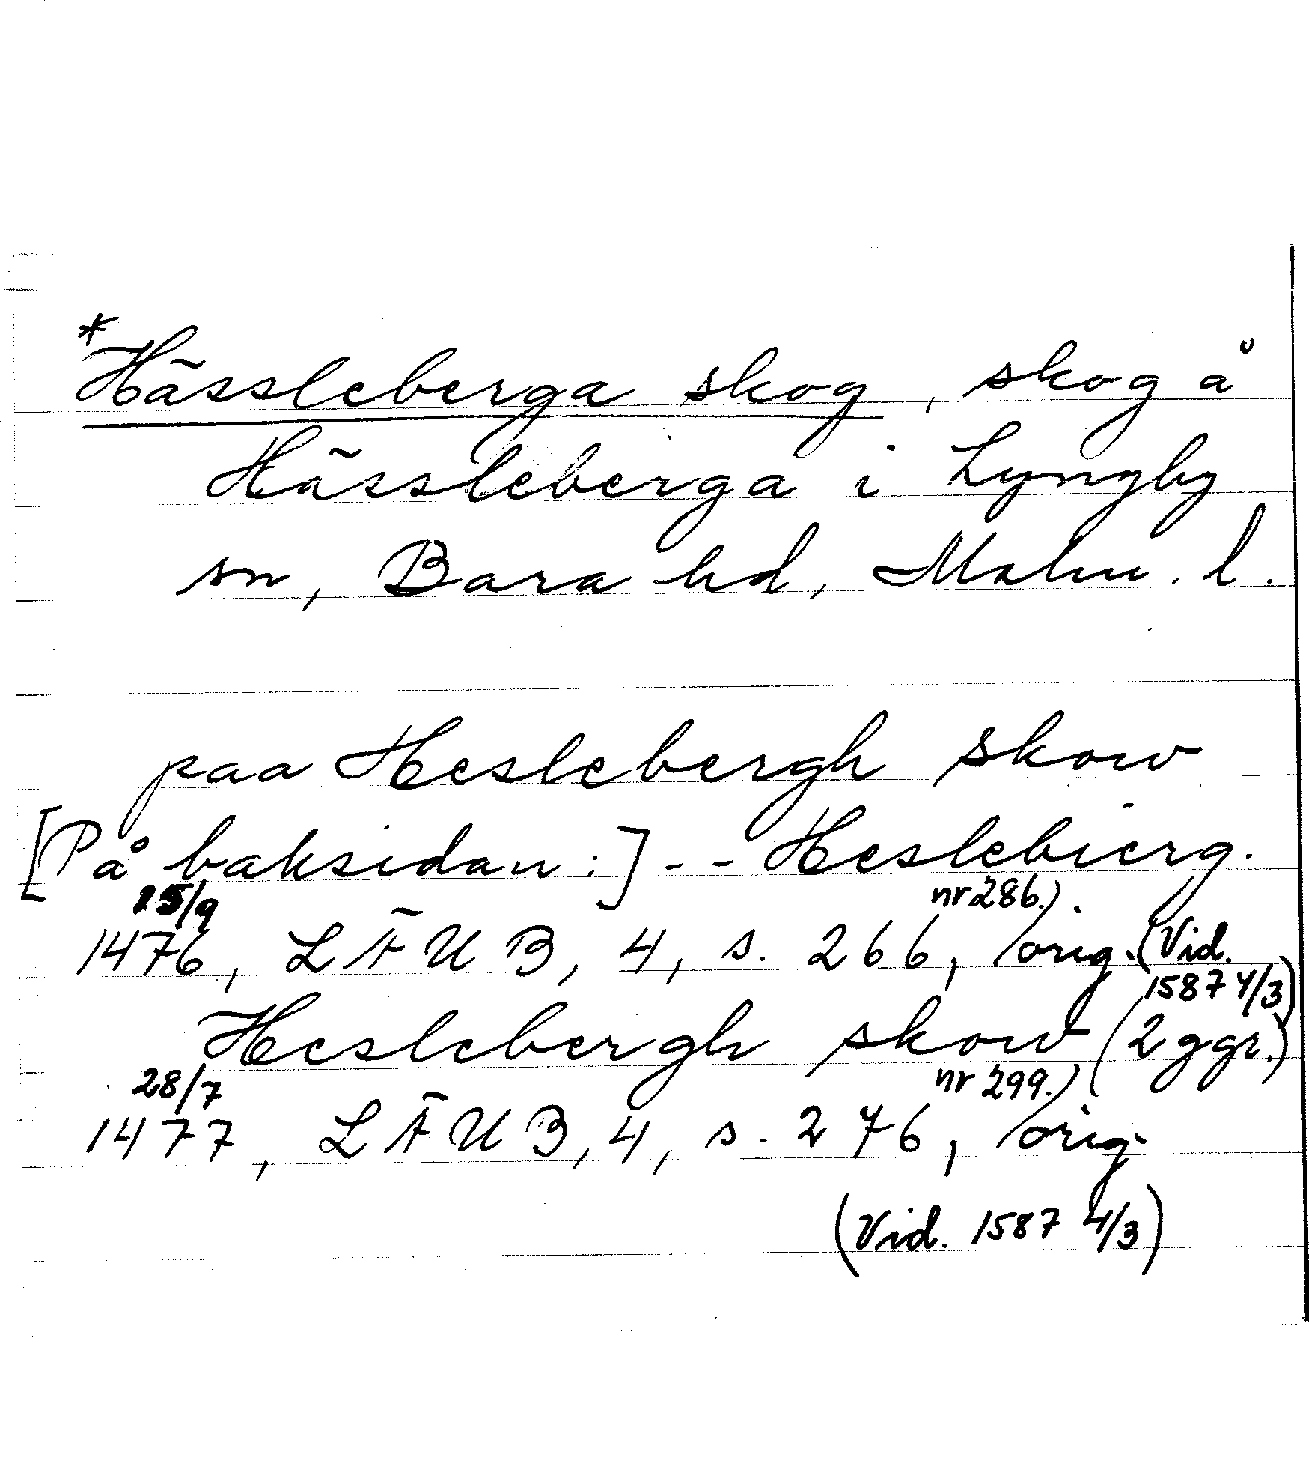 *Hässleberga skog, skog å
Hässleberga i Lyngby
sn, Bara hd, Malm. l.
paa Heslebergh skow
[På baksidan:] -- Heslebierg.
15/9 nr 286.)
1476, LÄUB, 4, s. 266, orig. (Vid.
1587 4/3)
Heslebergh skow (2 ggr.)
28/7 nr 299.)
1477, LÄUB, 4, s. 276, orig
(Vid. 1587 4/3)